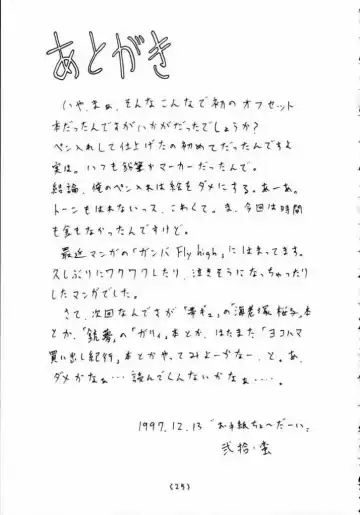 あとがき
いや、まぁ、そんなこんなで初のオフセット
本だったんですがいかがだったでしょうか?
ペン入れして仕上げたの初めてだったんですよ
実は。いつも鉛筆かマーカーだったんで。
結論、俺のペン入れは絵をダメにする。あーあ。
トーンもはれないって、これくて。ま、今回は時間
も金もなかったんですけど。
最近マンガの「ガンバ Fly high」に注まってます。
久しぶりにワクワクしたり、泣きそうになっちゃったり
したマンガでした。
さて、次回なんですが「帯ギュ」の「海老塚桜子」本
とか、「銃夢」の「ガリィ」本とか、はたまた「ヨコハマ
買い出し紀行」本とかやってみよーかなー、と。あ、
ダメかなぁ…読んでくんないかなぁ…。
1997.12.13 「お手紙ちょ〜だーい」
弐拾・蛮
(25)